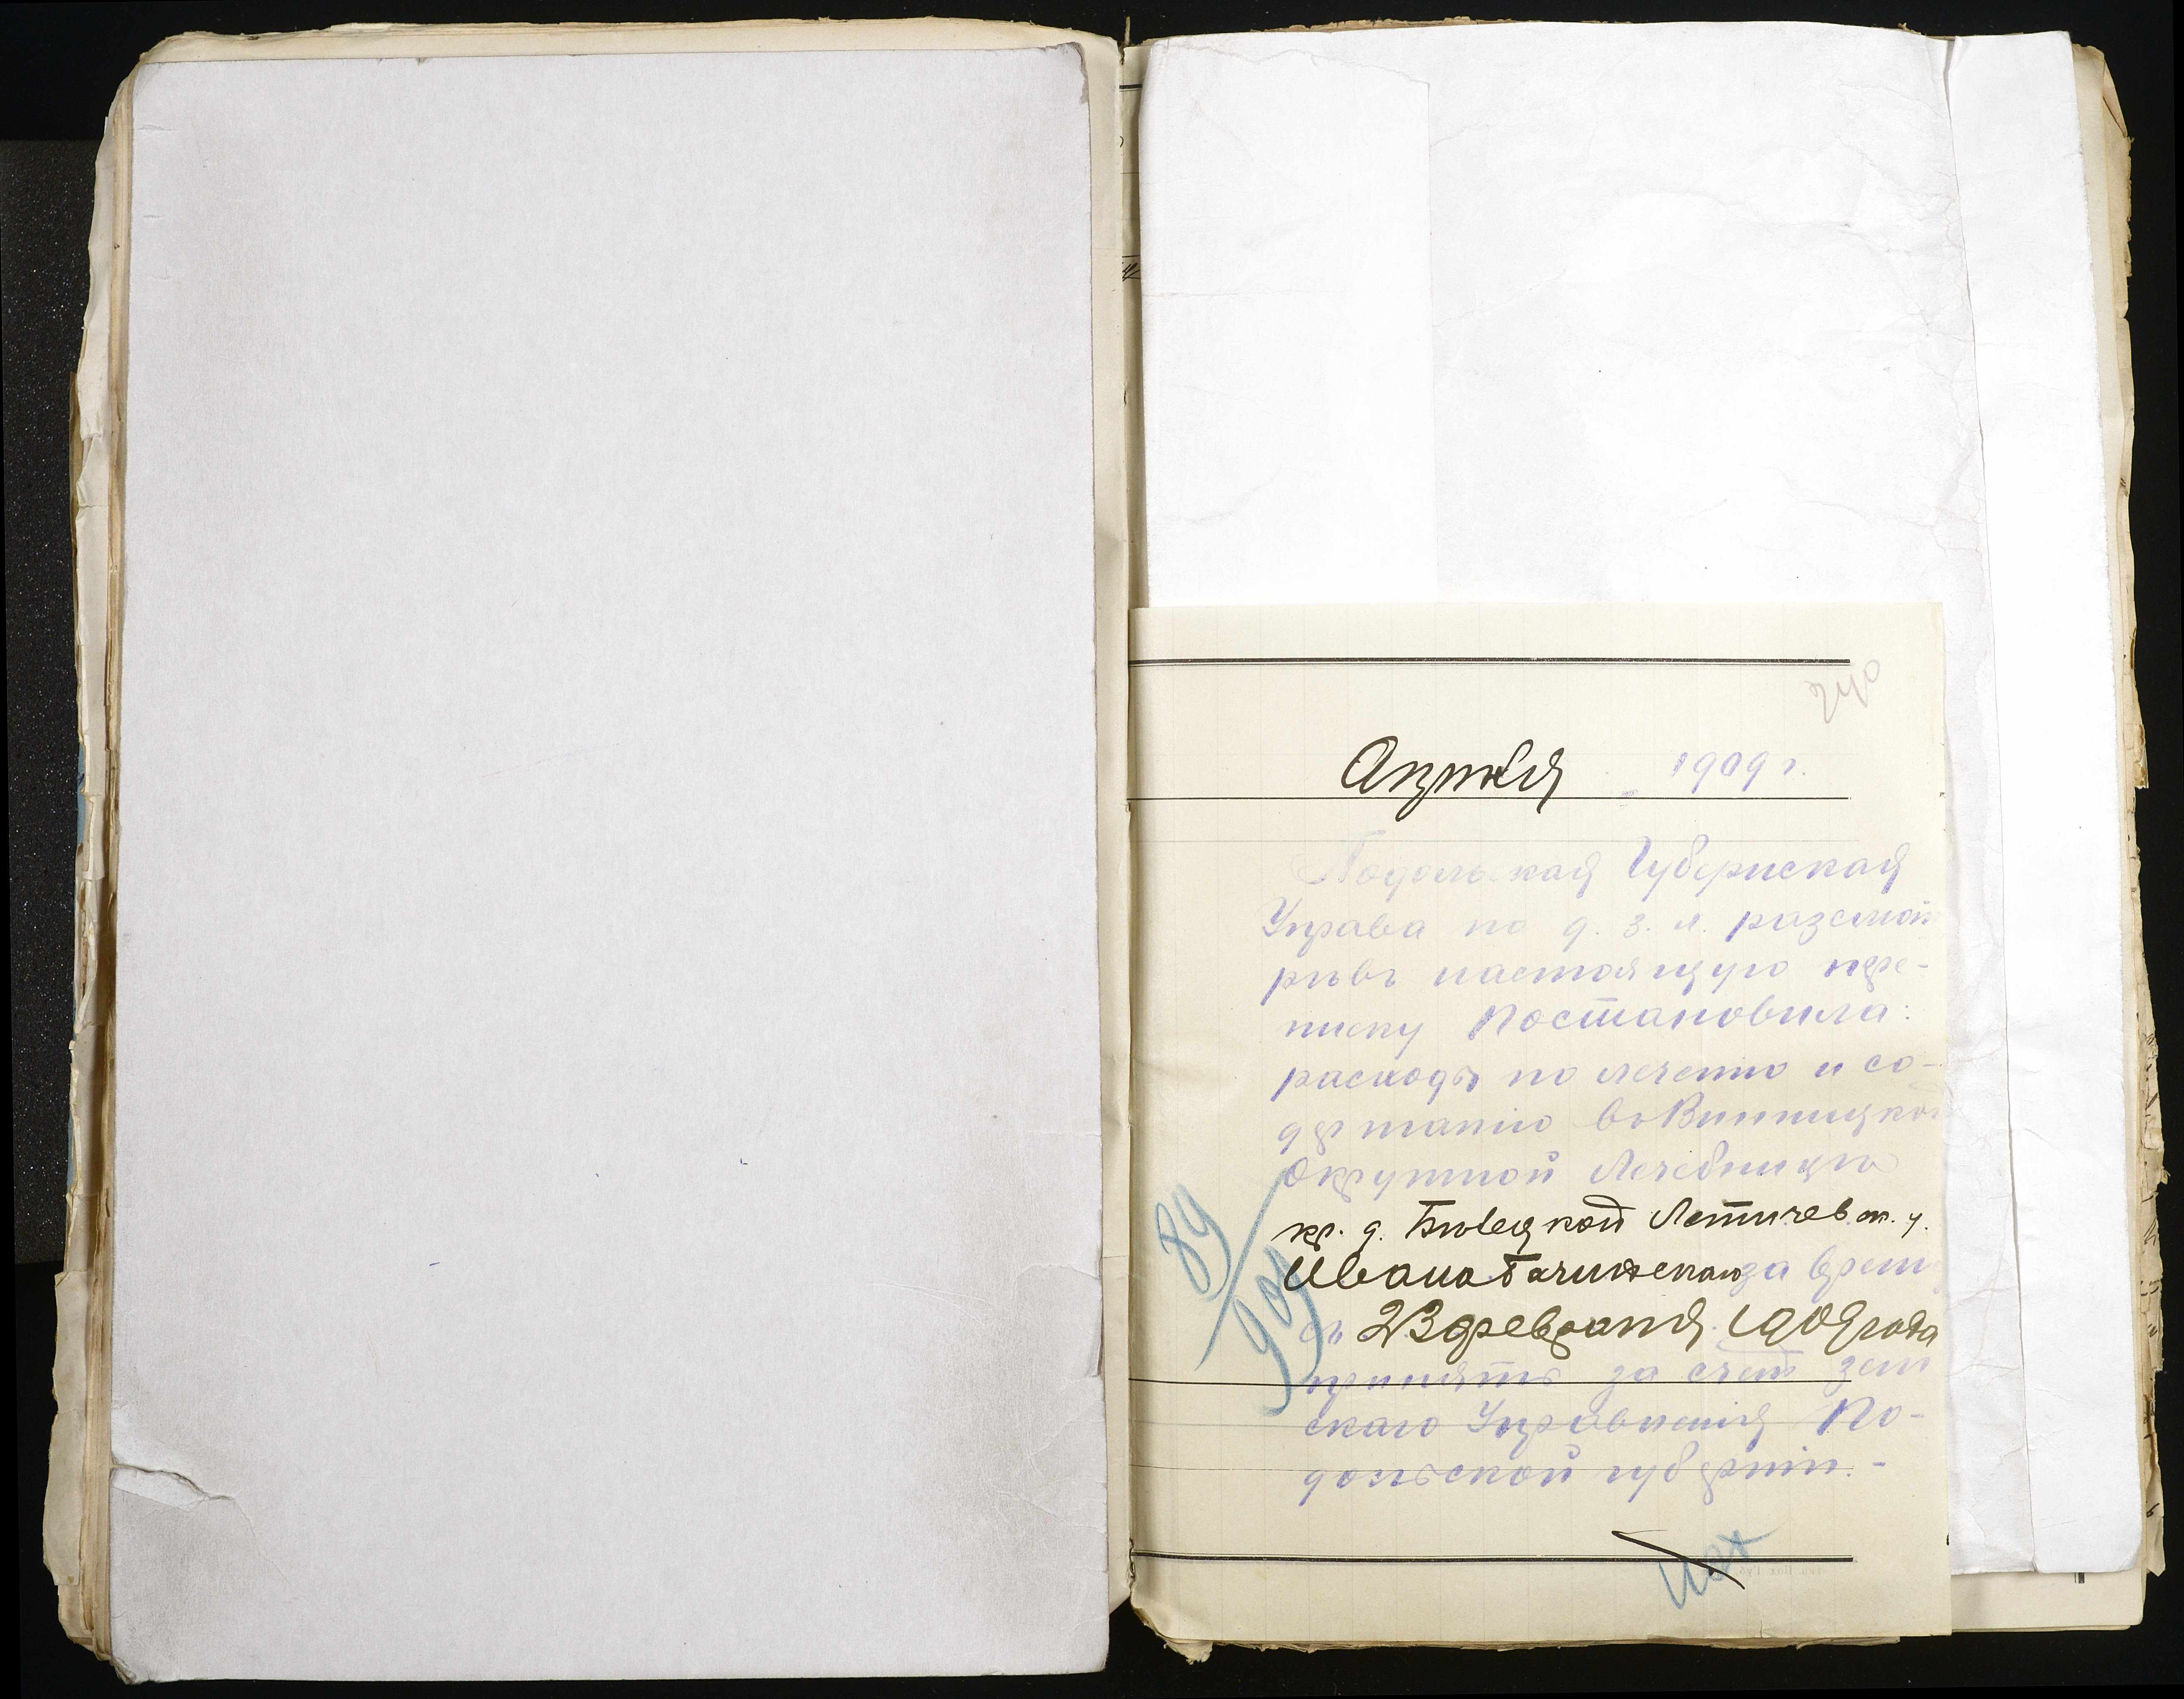 240
Апрѣля 1909 г.
Подольская Губернская
Управа по д. з. х. разсмот
рѣвъ настоящую пере-
писку Постановила:
расходы по леченію и со-
держанію въ Винницкой
Окружной Лечебницѣ
кр. д. Летичев. у.
Ивана за время
съ 23 февраля 1909 года
принять за счетъ зем
скаго Управленія По-
дольской губерніи.-
89/909
Исх